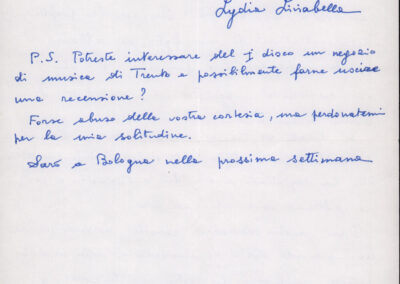 Lydia Liviabella
P.S. Potreste interessare del I disco un negozio
di musica di Trento e possibilmente farne uscire
una recensione?
Forse abuso della vostra cortesia, ma perdonatemi
per la mia solitudine.
Sarò a Bologna nella prossima settimana